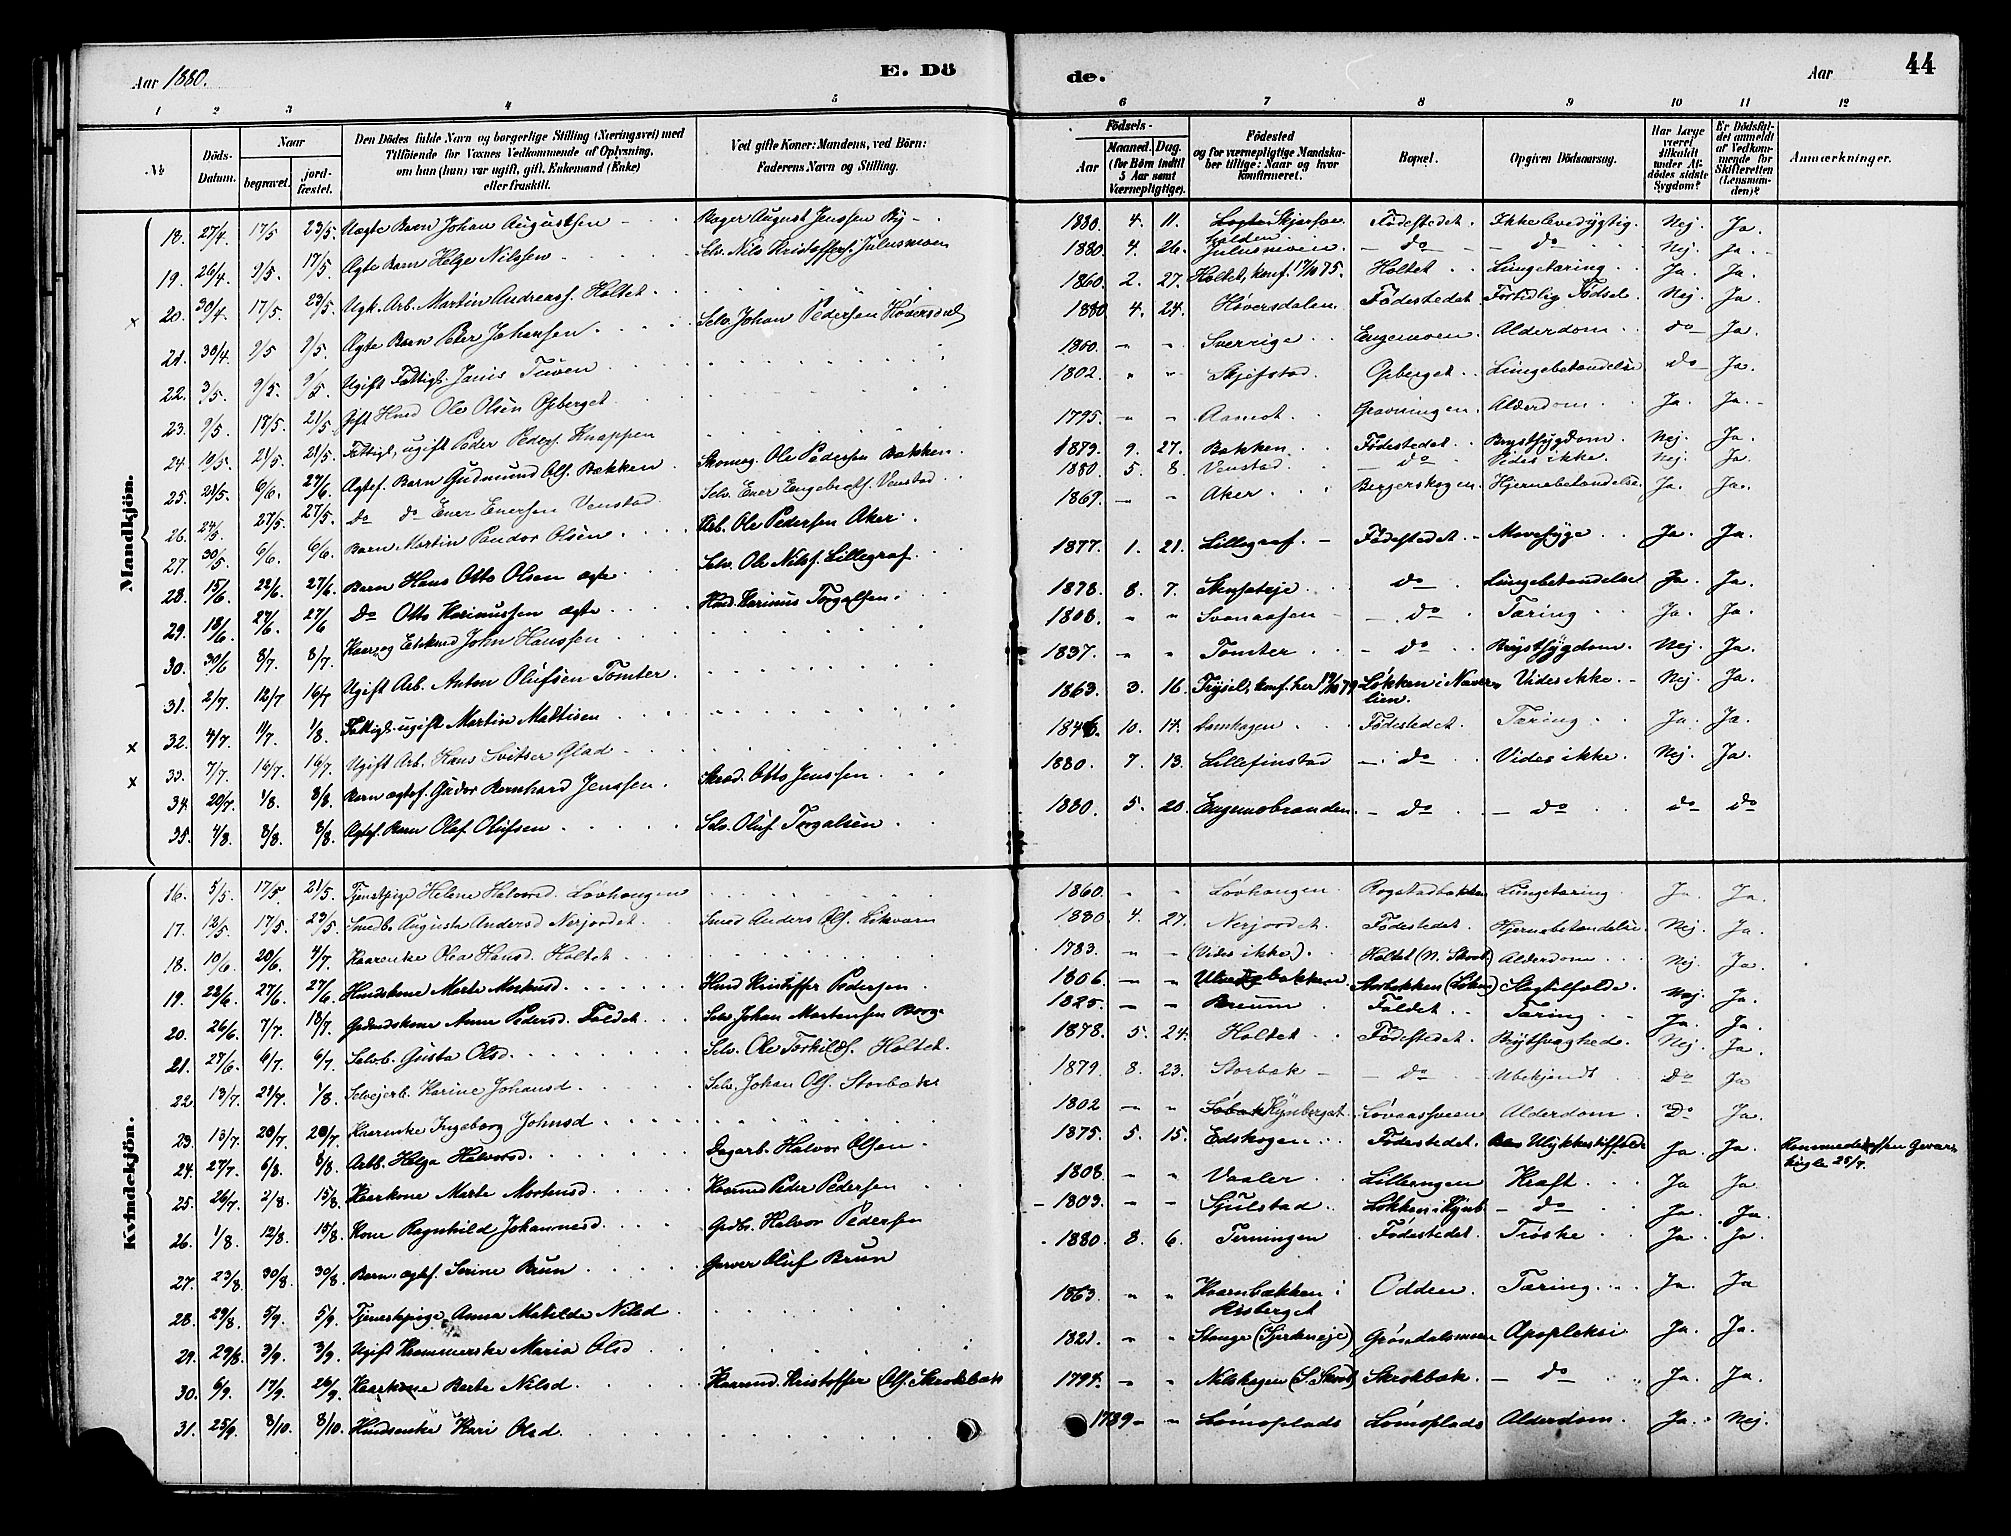 Aar 1880.
E. Dö
de.
Aar
44
1 2 3 4 5 6 7 8 9 10 11 12
№
Döds-Datum.
Naar
begravet.
jord-fæstet.
Den Dödes fulde Navn og borgerlige Stilling (Næringsvei) med
Tilföiende for Voxnes Vedkommende af Oplysning,
om han (hun) var ugift, gift, Enkemand (Enke)
eller fraskilt.
Ved gifte Koner: Mandens, ved Börn:
Faderens Navn og Stilling.
Födsels-
Aar
Maaned. Dag.
(for Börn indtil
5 Aar samt
Værnepligtige).
Födested
og for værnepligtige Mandska-
ber tillige: Naar og hvor
konfirmeret.
Bopæl.
Opgiven Dödsaarsag.
Har Læge
været
tilkaldt
under Af-
dödes sidste
Sygdom?
Er Dödsfal-
det anmeldt
af Vedkom-
mende for
Skifteretten
(Lensman-
den)?
Anmærkninger.
Mandkjön.
18. 27/4 17/5 23/5. Uægte Barn Johan Augustsen Bager August Jenssen By 1880 4. 11. Skjærsoe Fødestedet. Ikke levedygtig. Nej Ja.
19. 26/4 9/5. 17/5. Ægte Barn Helge Nilssen Selv. Nils Kristoffers. Julusmoen 1880 4. 26. Julusmoen do do Nej. Ja.
20. 30/4 17/5. 23/5. Ugk. Arb. Martin Andreass. Holtet 1860. 2. 27. Holtet, konf. 17/10 75. Holtet Lungetæring Ja. Ja.
21. 30/4. 9/5 9/5. Ægte Barn Peter Johansen Selv. Johan Pedersen Høversdal 1880 4. 24. Høversdalen Fødestedet Fortidlig Fødsel Nej. Ja.
22. 3/5. 9/5. 9/5. Ugift Fattigl. Janis Tuven 1800. Sverrige Engemoen. Alderdom do Ja.
23. 9/5. 18/5. 21/5. Gift Hmd Ole Olsen Opberget 1802. Skjefstad. Opberget Lungebetændelse do Ja.
24. 10/5. 21/5. 21/5. Fattigl. ugift Peder Peders. Knappen 1795. Aamot. Gravningen. Alderdom Ja. Ja.
25. 28/5. 6/6. 27/6. Ægtef. Barn Gudmund Ols. Bækken Skomag. Ole Pedersen Bækken. 1879. 9. 27. Bækken Fødestedet Brystsygdom. Nej. Ja.
26. 24/5. 27/5. 27/5. do do Ener Enersen Venstad Selv. Ener Engebrets. Venstad 1880 5. 8. Venstad. do Vides ikke. Nej Ja
27. 30/5. 6/6. 6/6. Barn Martin Pandor Olsen Arb. Ole Pedersen Aker. 1869. Aker Bergerskogen. Hjernebetændelse. Ja. Ja.
28. 15/6 22/6. 27/6. Barn Hans Otto Olsen ægte Selv. Ole Nilss. Lillegraf 1877. 1. 21. Lillegraf. Fødestedet Mavesyge Ja. Ja.
29. 18/6. 27/6. 27/6 Do Otto Karinussen ægte Hmd. Karinus Torgalsen. 1878. 8. 7. do Lungebetændelse Ja. Ja.
30. 30/6 8/7. 8/7. Kaar og Enkmd John Hanssen 1808. Svenaasen do Tæring Ja. Ja.
31. 2/7. 12/7 16/7. Ugift Arb. Anton Olufsen Tomter 1837. Tomter do Brystsygdom. Nej. Ja.
32. 4/7. 11/7. 1/8. Fattigl. ugift Martin Mattisen 1863. 3. 16. Trysil, konf. her Løkken i Naver-
lien. Vides ikke. Nej Ja.
33. 7/7. 16/7. 16/7. Ugift Arb. Hans Svitser Glad 1846. 10. 14. Fødestedet. Tæring Ja. Ja.
34. 20/7. 1/8. 8/8. Barn ægtef. Gudor Bernhard Jenssen. Skræd. Otto Jenssen. 1880. 7. 13. Lillefinstad do Vides ikke. Nej. Ja.
35. 4/8. 8/8. 8/8. Ægtef. Barn Olaf Olufsen Selv. Oluf Torgalsen 1880. 5. 20. Engemobranden. do do do do
Kvindekjön.
16. 5/5. 17/5 21/5. Tjenestpige Helene Halvorsd. Løvhaugen 1860. Løvhaugen. Rogstadbakken Lungetæring. Ja Ja.
17. 12/5. 17/5. 23/5. Smedb. Augusta Andersd Nerjordet Smed Anders Ols. Likvern 1880. 4. 27. Nerjordet. Fødestedet. Hjernebetændelse. Nej. Ja.
18. 10/6. 20/6. 4/7. Kaarenke Olea Hansd. Holtet 1783. (Vides ikke) Holtet (N. Skovb) Alderdom Nej. Ja.
19. 22/6. 27/6. 27/6. Hmdskone Marte Mortensd. Hmd Kristoffer Pedersen. 1806. Storbekken Slagtilfælde. Nej. Ja.
20. 26/6. 7/7. 18/7. Grdmdskone Anne Pedersd. Faldet. Selv. Johan Mortensen Borge 1825. Berum Faldet Tæring Ja. Ja.
21. 27/6 6/7. 6/7. Selvb. Gusta Olsd. Selv. Ole Torkilds. Holtet. 1878. 5. 24. Holtet Fødestedet. Brystsvaghed. Nej. Ja.
22. 13/7. 21/7. 1/8. Selvejerb. Karine Johansd Selv. Johan Ols. Storbæk 1879. 8. 23. Storbæk do Ubekjendt do Ja
23. 13/7. 20/7. 20/7. Kaarenke Ingeborg Johnsd 1802 Kynberget. Løvaassveen Alderdom. do Ja.
24. 27/7. 6/8. 8/8. Arbb. Helga Halvorsd. Dagarb. Halvor Olsen 1875. 5. 15. Edskogen Fødestedet. Ulykkestilfælde Ja. Ja. Rammedes af en Gevær-
kugle 25/7.
25. 26/7. 2/8. 15/8. Kaarkone Marte Mortensd. Kaarmd Peder Pedersen 1808. Vaaler Lillerengen Kræft Ja Ja
26. 1/8. 12/8. 15/8. Kone Ragnhild Johannesd. Grdbr. Halvor Pedersen 1803. Gjulstad Løkken i Kynb. do Ja. Ja.
27. 23/8. 30/8. 30/8. Barn ægtef. Serine Brun Garver Oluf Brun 1880. 8. 6. Terningen Fødestedet. Trøske Ja. Ja.
28. 29/8. 5/9. 5/9. Tjenestpige Anna Matilde Nilsd 1863. Kvernbækken i
Risberget Odden. Tæring Ja. Ja
29. 29/8. 3/9. 3/9. Ugift Kræmmerske Maria Olsd 1821. Stange (Gjerdeneje) Grøndalsmoen Apopleksi Ja. Ja.
30. 6/9. 17/9 26/9. Kaarkone Berte Nilsd. Kaarmd. Kristoffer Ols. Skrokbæk 1794. Nilshagen (S. Skovb) Skrokbæk. do Ja. Ja
31. 25/9. 8/10. 8/10. Hmdsenke Kari Olsd. 1789 Lømoplads Lømoplads Alderdom. Ja. Nej.